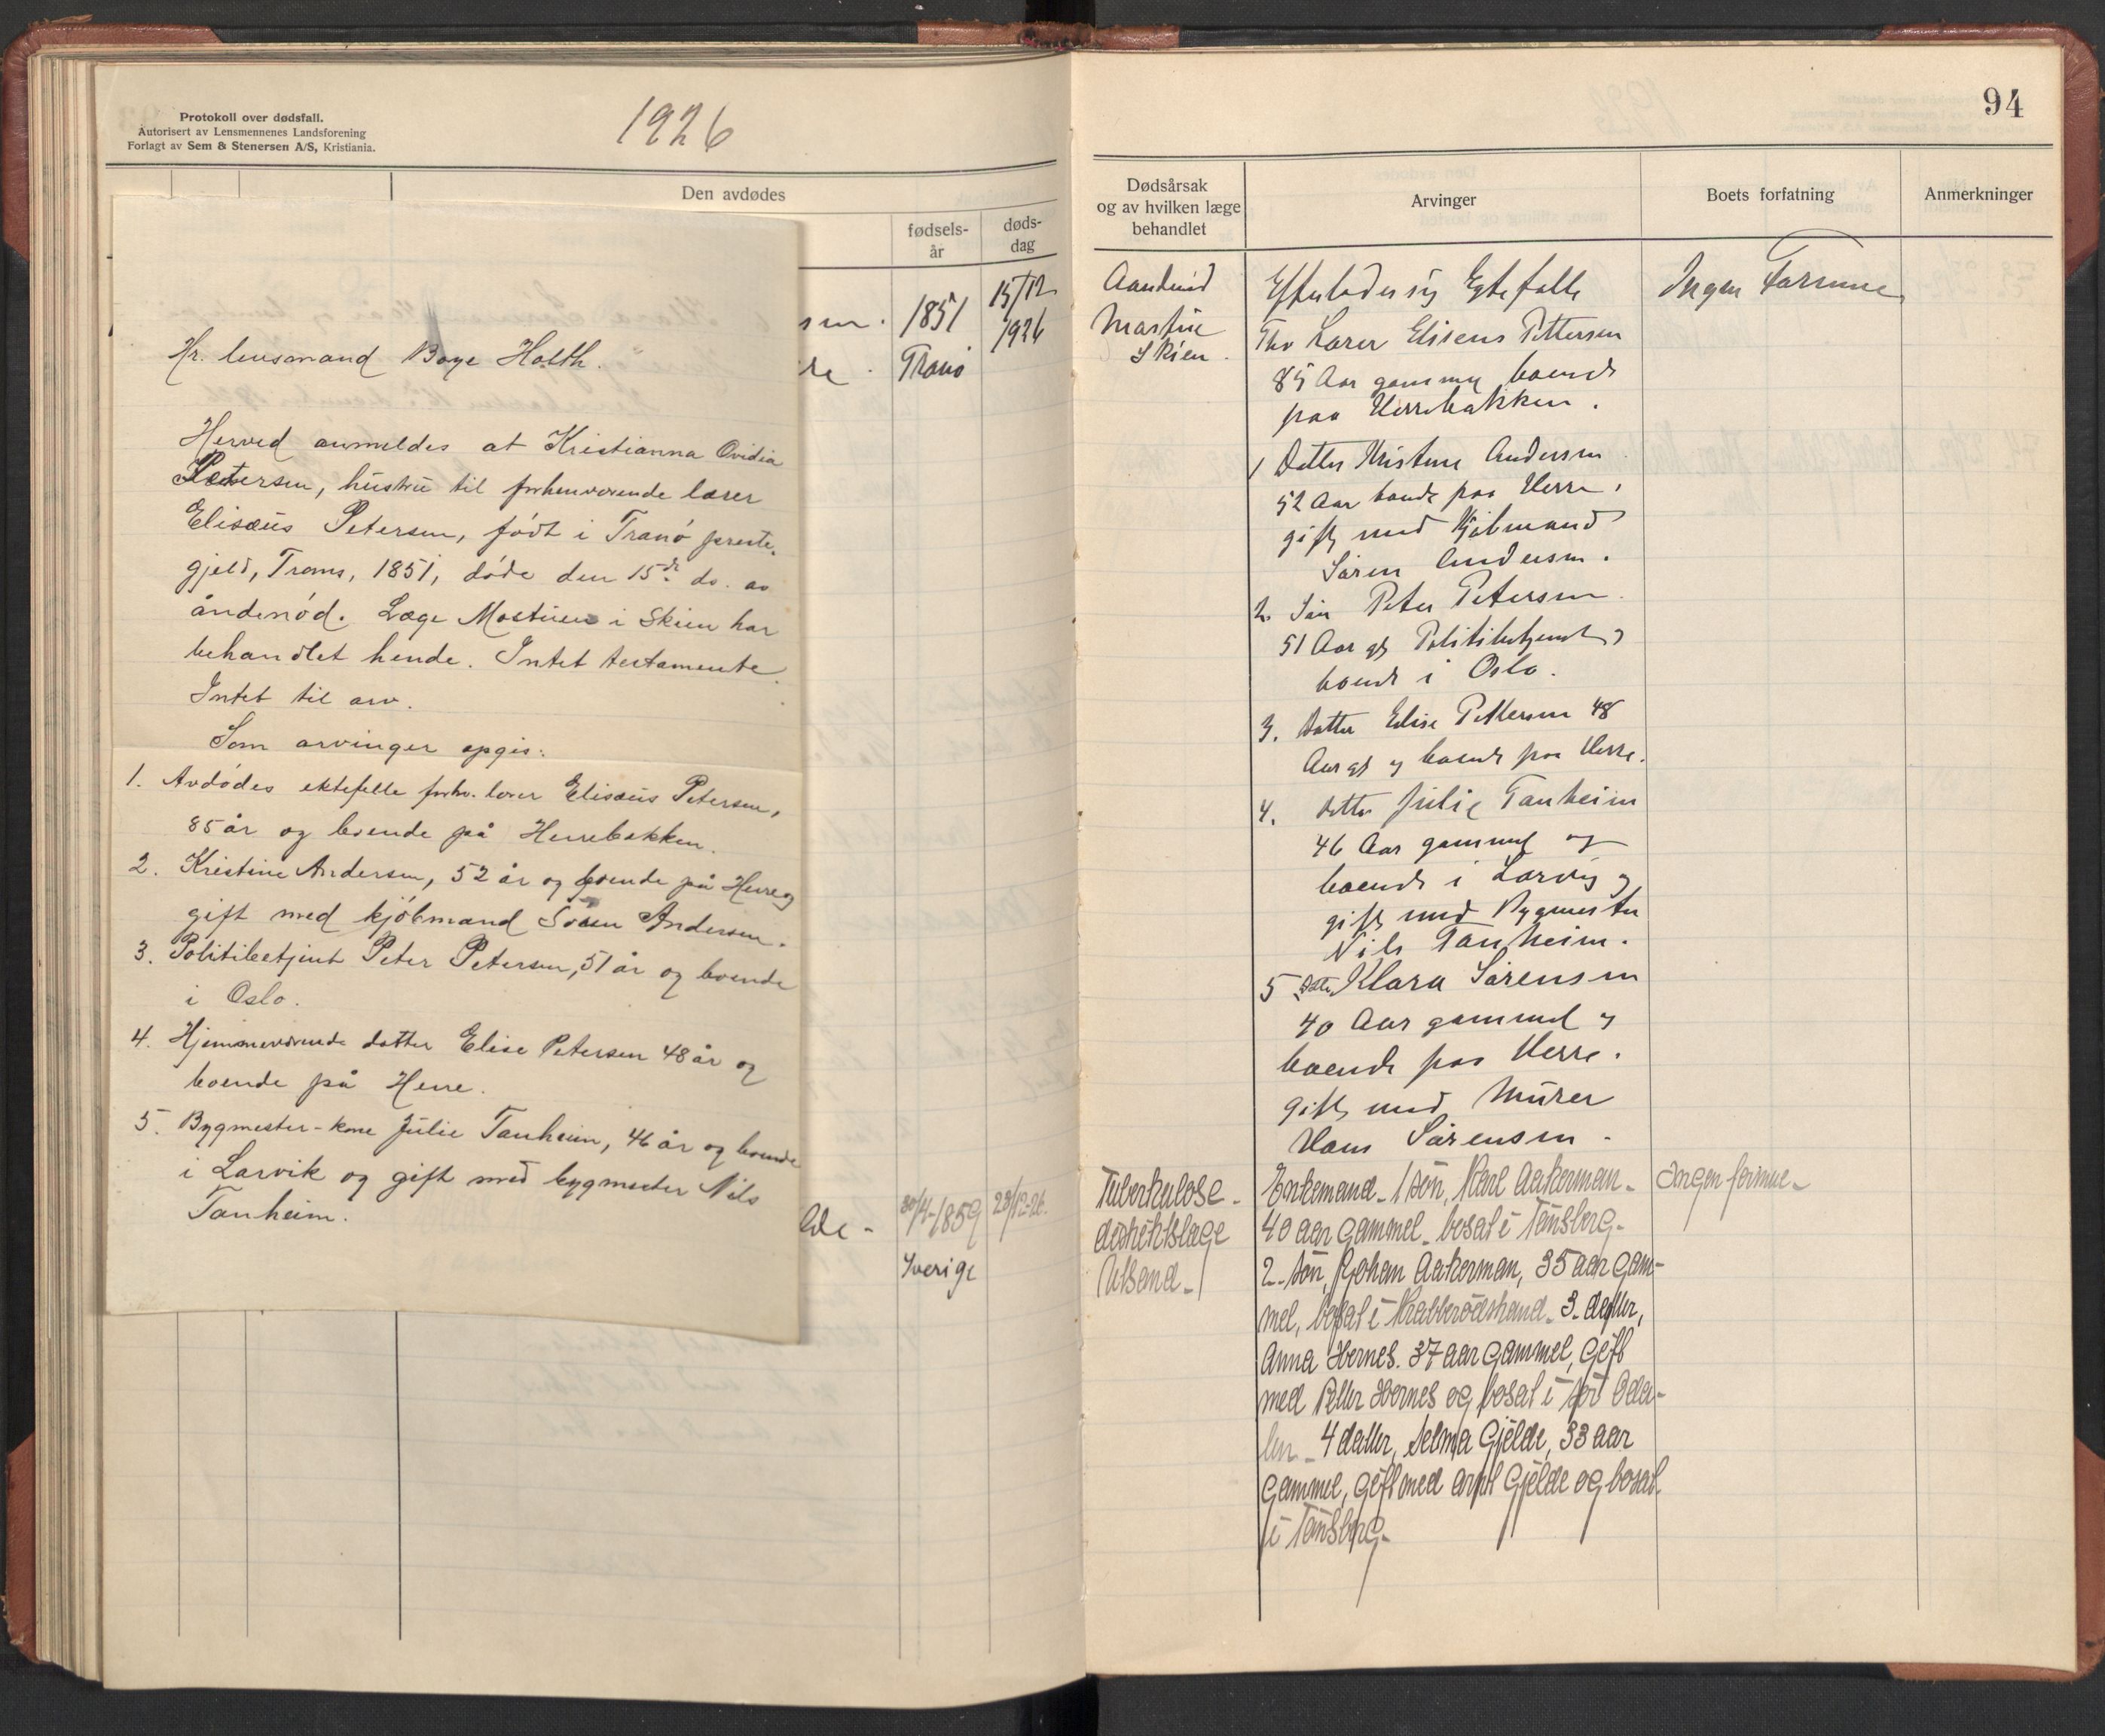 Protokoll over dødsfall.
Autorisert av Lensmennenes Landsforening
Forlagt av Sem & Stenersen A/S, Kristiania.
1926
Den avdødes
fødsels-
år
døds-
dag
1851
Tranö
15/12
1926
Hr. lensmand Boye Holth.
Herved anmeldes at Kristianna Ovidia
Petersen, hustru til forhenværende lærer
Elisæus Petersen, født i Tranö preste-
gjeld, Troms, 1851, döde den 15de ds. av
åndenöd. Læge Mostuen i Skien har
behandlet hende. Intet testamente.
Intet til arv.
Som arvinger opgis:
1. Avdödes ektefelle forhv. lærer Elisæus Petersen,
85 år og boende på Herrebakken.
2. Kristine Andersen, 52 år og boende på Herre og
gift med kjöbmand Sören Andersen.
3. Politibetjent Peter Petersen, 51 år og boende
i Oslo.
4. Hjemmeværende datter Elise Petersen 48 år og
boende på Herre.
5. Bygmester-kone Julie Tanheim, 46 år og boende
i Larvik og gift med bygmester Nils
Tanheim.
30/4-1859
Sverige
28/12-26.
94
Dødsårsak
og av hvilken læge
behandlet
Arvinger
Boets forfatning
Anmerkninger
Aandenöd
Skien.
Efterlader sig Egtefelle
Lærer Eliseus Pettersen
85 Aar gammel boende
paa Herrebakken.
1 Datter Kristine Andersen
52 Aar boende paa Herre,
gift med Kjöbmand
Sören Andersen.
2. Sön Peter Petersen
51 Aar gl Politibetjent
boende i Oslo.
3. Datter Elise Pettersen 48
Aar gl og boende paa Herre.
4. Datter Julie Tanheim
46 Aar gammel og
boende i Larvig og
gift med Bygmester
Nils Tanheim.
5 Datter Klara Sörensen
40 Aar gammel og
boende paa Herre.
gift med Murer
Hans Sörensen.
Ingen Formue
Tuberkulose-
distriktslæge
Enkemand. 1 sön, Karl Aakerman-
40 aar gammel. bosat i Tönsberg-
2- sön, Johan Aakerman, 35 aar gam-
mel, bosat i Krabberödstrand. 3. datter,
Anna Hernes. 37 aar gammel, gift
med Petter Hernes og bosat i sör Oda-
len. 4 datter, Selma Gjelde, 33 aar
gammel, gift med Arnt Gjelde og bosat
i Tönsberg-
Ingen formue-